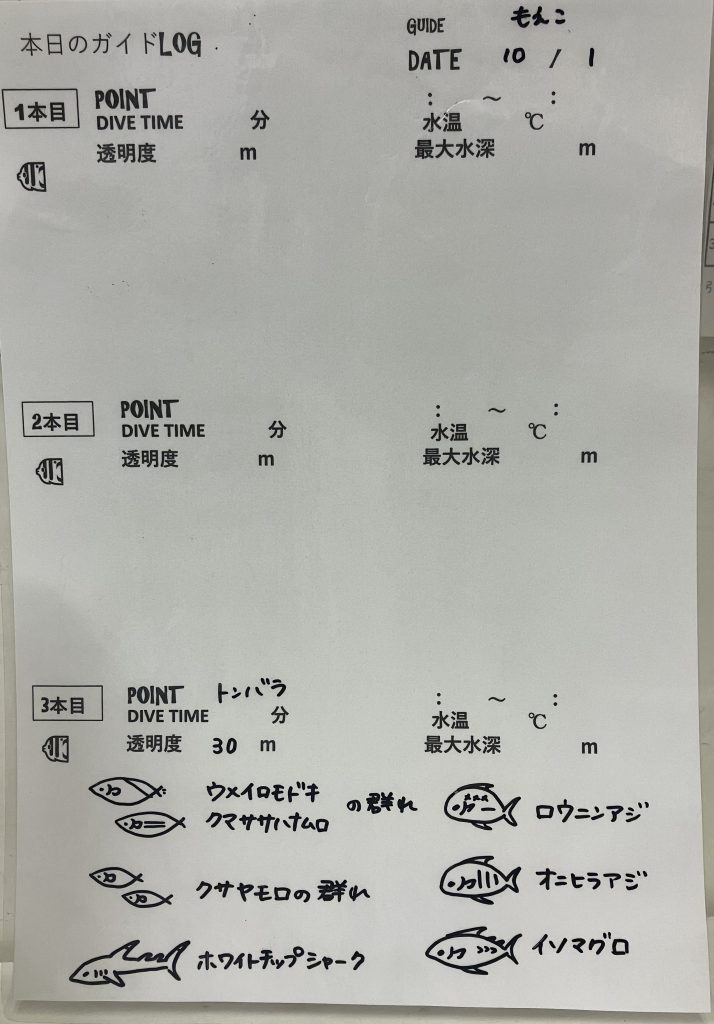 本日のガイドLOG
GUIDE もえこ
DATE 10 / 1
1本目 POINT : ～ :
DIVE TIME 分 水温 ℃
透明度 m 最大水深 m
2本目 POINT : ～ :
DIVE TIME 分 水温 ℃
透明度 m 最大水深 m
3本目 POINT トンバラ : ～ :
DIVE TIME 分 水温 ℃
透明度 30 m 最大水深 m
ウメイロモドキ
クマササハナムロ の群れ
ロウニンアジ
クサヤモロの群れ
オニヒラアジ
ホワイトチップシャーク
イソマグロ